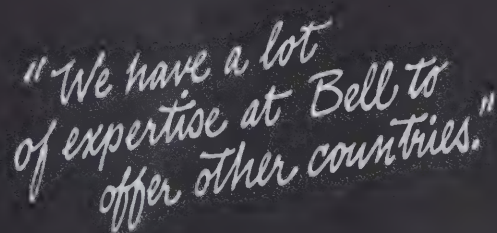 "We have a lot
of expertise at Bell to
offer other countries."